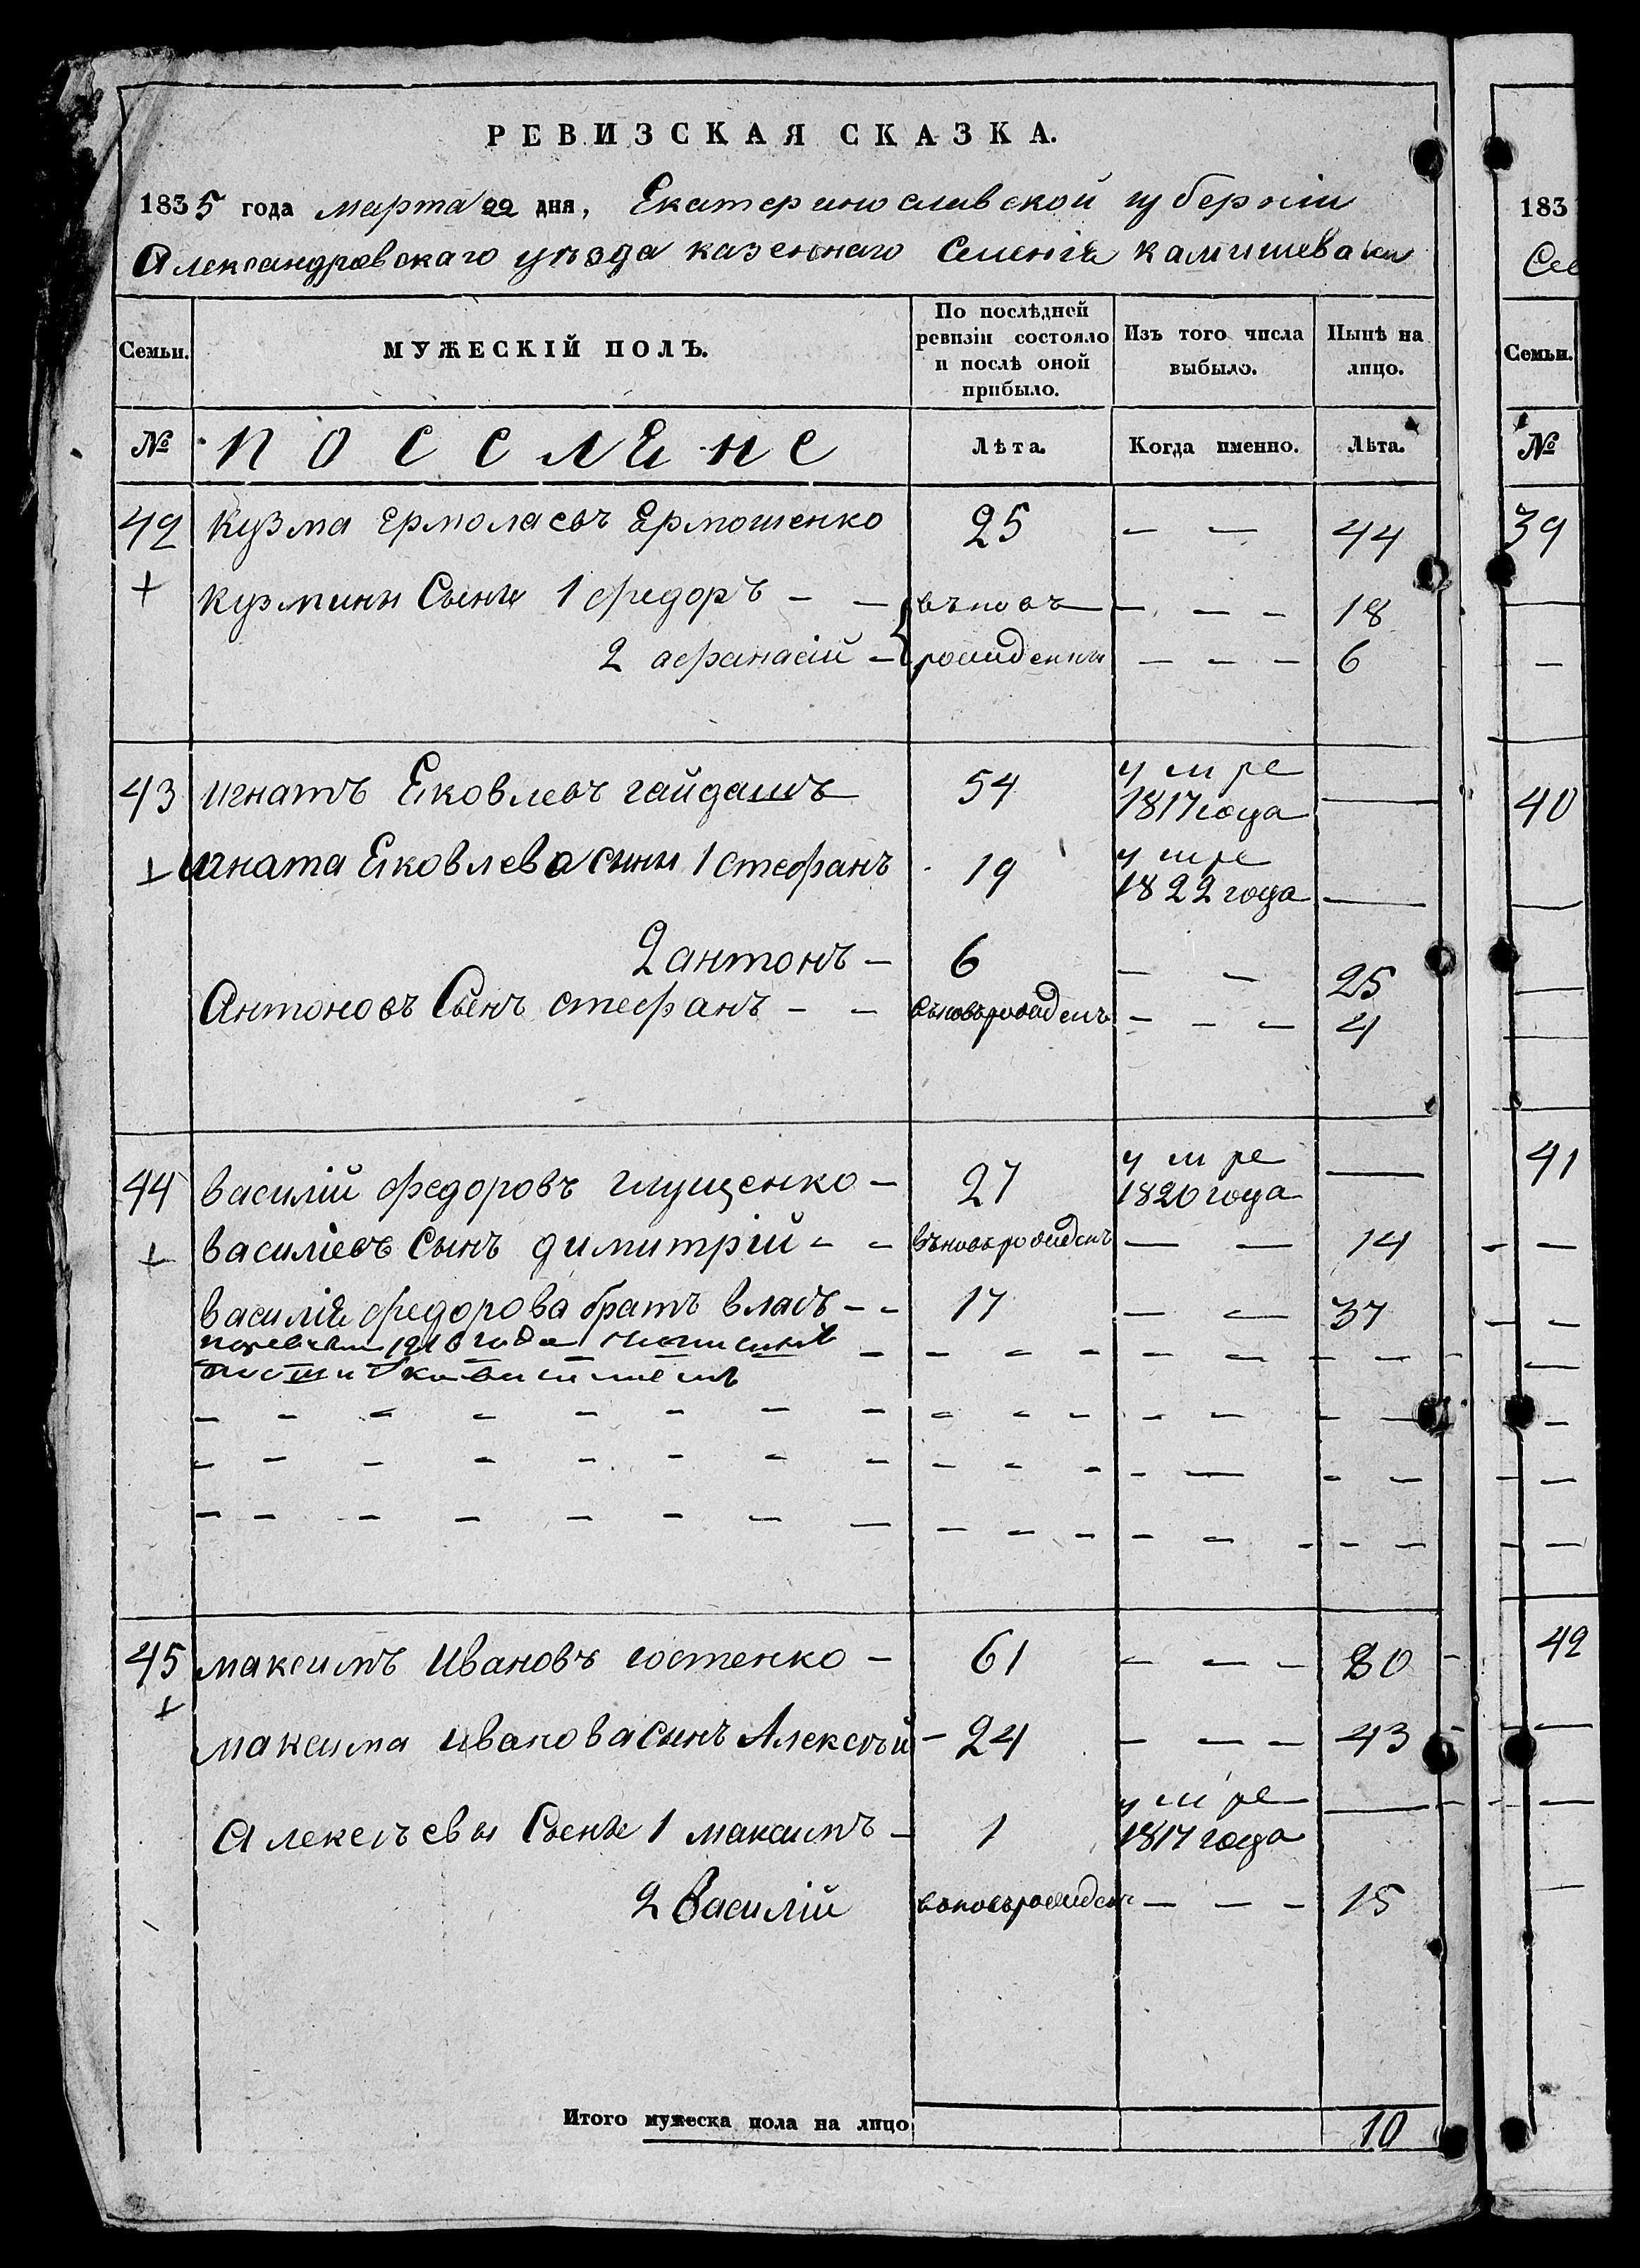 РЕВИЗСКАЯ СКАЗКА.
1835 года марта 22 дня, Екатеринославской губерніи
Александровскаго уѣзда казеннаго Селенія камишевахи
Семьи. МУЖЕСКІЙ ПОЛЪ. По послѣдней ревизіи состояло и послѣ оной прибыло. Изъ того числа выбыло. Нынѣ на лицо.
№ поселяне Лѣта. Когда именно. Лѣта.
42 Кузма Ермолаевъ Ермошенко 25 — — 44
+ Кузмини Сыны 1 федоръ — — вьновь — — — 18
2 афанасій — рожденны — — — 6
43 игнатъ Яковлевъ гайдашъ 54 умре 1817 года —
+ игната Яковлева сины 1 стефанъ 19 умре 1822 года —
2 антонъ — 6 — — 25
Антоновъ Сынъ стефанъ — — вьновьрожденъ — — — 4
44 василій федоровъ глущенко — 27 умре 1820 года —
+ василіевъ сынъ димитрій — — вьновьрожденъ — — 14
василія федорова братъ власъ — — 17 — — 37
1816 года
45 максимъ Ивановъ костенко — 61 — — — 80
+ максима иванова синъ Алексѣй — 24 — — — 43
Алексѣевы Сыны 1 максимъ — 1 умре 1817 года —
2 Василій вьновьрожден — — — 15
Итого мужеска пола на лицо 10
183
Се
Семьи.
№
39
40
41
42